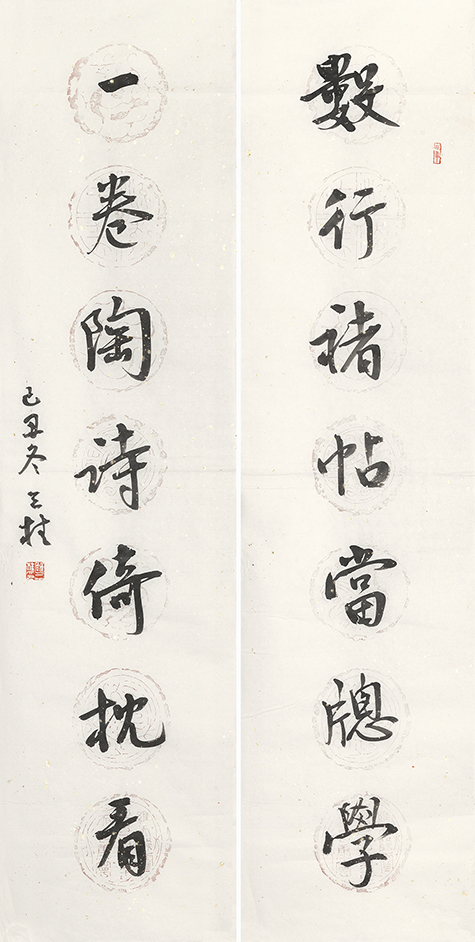 數行褚帖當牕學
一卷陶詩倚枕看
己丑冬